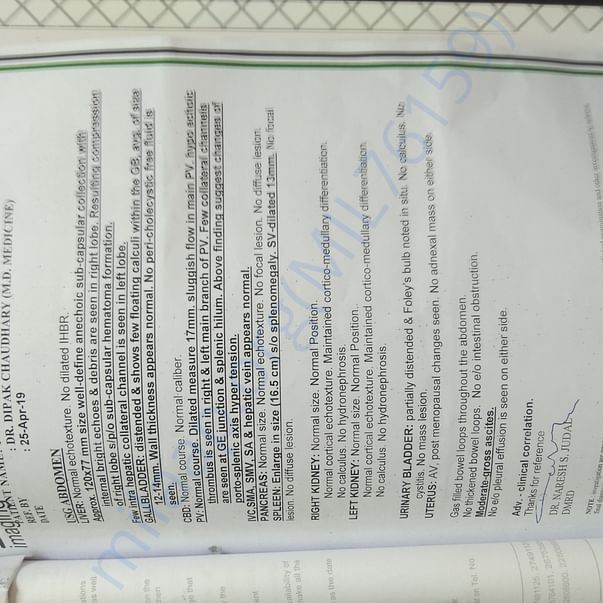 REF BY : DR. DIPAK CHAUDHARY (M.D. MEDICINE)
DATE : 25-Apr-19
USG ABDOMEN
LIVER: Normal echotexture. No dilated IHBR.
Approx. 120x77 mm size well-define anechoic sub-capsular collection with
internal bright echoes & debris are seen in right lobe. Resulting compression
of right lobe s/p/o sub-capsular hematoma formation.
Few intra hepatic collateral channel is seen in left lobe.
GALLBLADDER: distended & shows few floating calculi within the GB, avg. of size
12-14mm. Wall thickness appears normal. No peri-cholecystic free fluid is
seen.
CBD: Normal course. Normal caliber.
PV: Normal course. Dilated measure 17mm. slughish flow in main PV. hypo echoic
thrombus is seen in right & left main branch of PV. Few collateral channels
are seen at GE junction & splenic hilum. Above finding suggest changes of
porto-splenic axis hyper tension.
IVC,SMA, SMV, SA & hepatic vein appears normal.
PANCREAS: Normal size. Normal echotexture. No focal lesion. No diffuse lesion.
SPLEEN: Enlarge in size (16.5 cm) s/o splenomegaly. SV-dilated 13mm. No focal
lesion. No diffuse lesion.
RIGHT KIDNEY: Normal size. Normal Position.
Normal cortical echotexture. Maintained cortico-medullary differentiation.
No calculus. No hydronephrosis.
LEFT KIDNEY: Normal size. Normal Position.
Normal cortical echotexture. Maintained cortico-medullary differentiation.
No calculus. No hydronephrosis.
URINARY BLADDER: partially distended & Foley's bulb noted in situ. No calculus. No
cystitis. No mass lesion.
UTERUS: AV, post menopausal changes seen. No adnexal mass on either side.
Gas filled bowel loops throughout the abdomen.
No thickened bowel loops. No e/o intestinal obstruction.
Moderate-gross ascites.
No e/o pleural effusion is seen on either side.
Adv.: clinical corrolation.
Thanks for reference
DR. NARESH S. JUDAL
DMRD
NOTE: